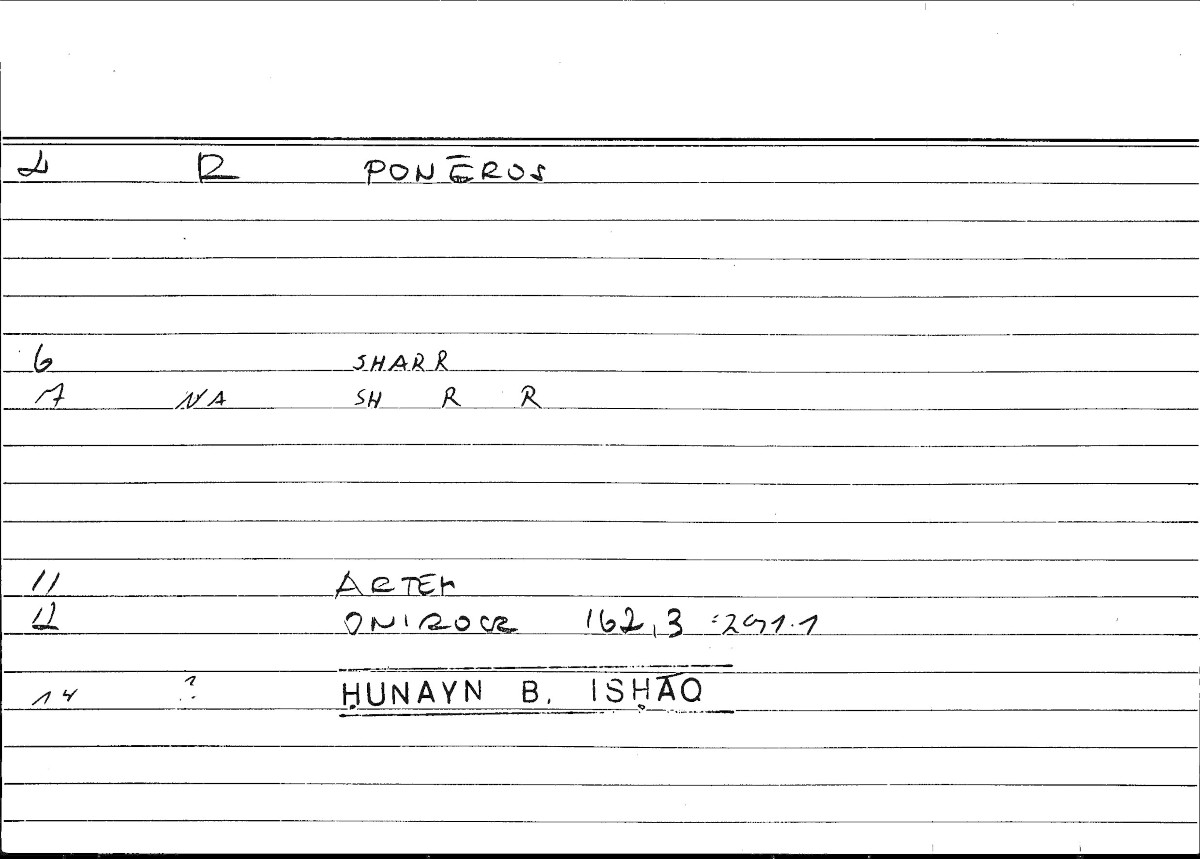 1 R PONĒROS
6 SHARR
7 NA SH R R
11 ARTEM
12 ONIROCR 162,3 :291.1
14 ? ḤUNAYN B. ISḤĀQ